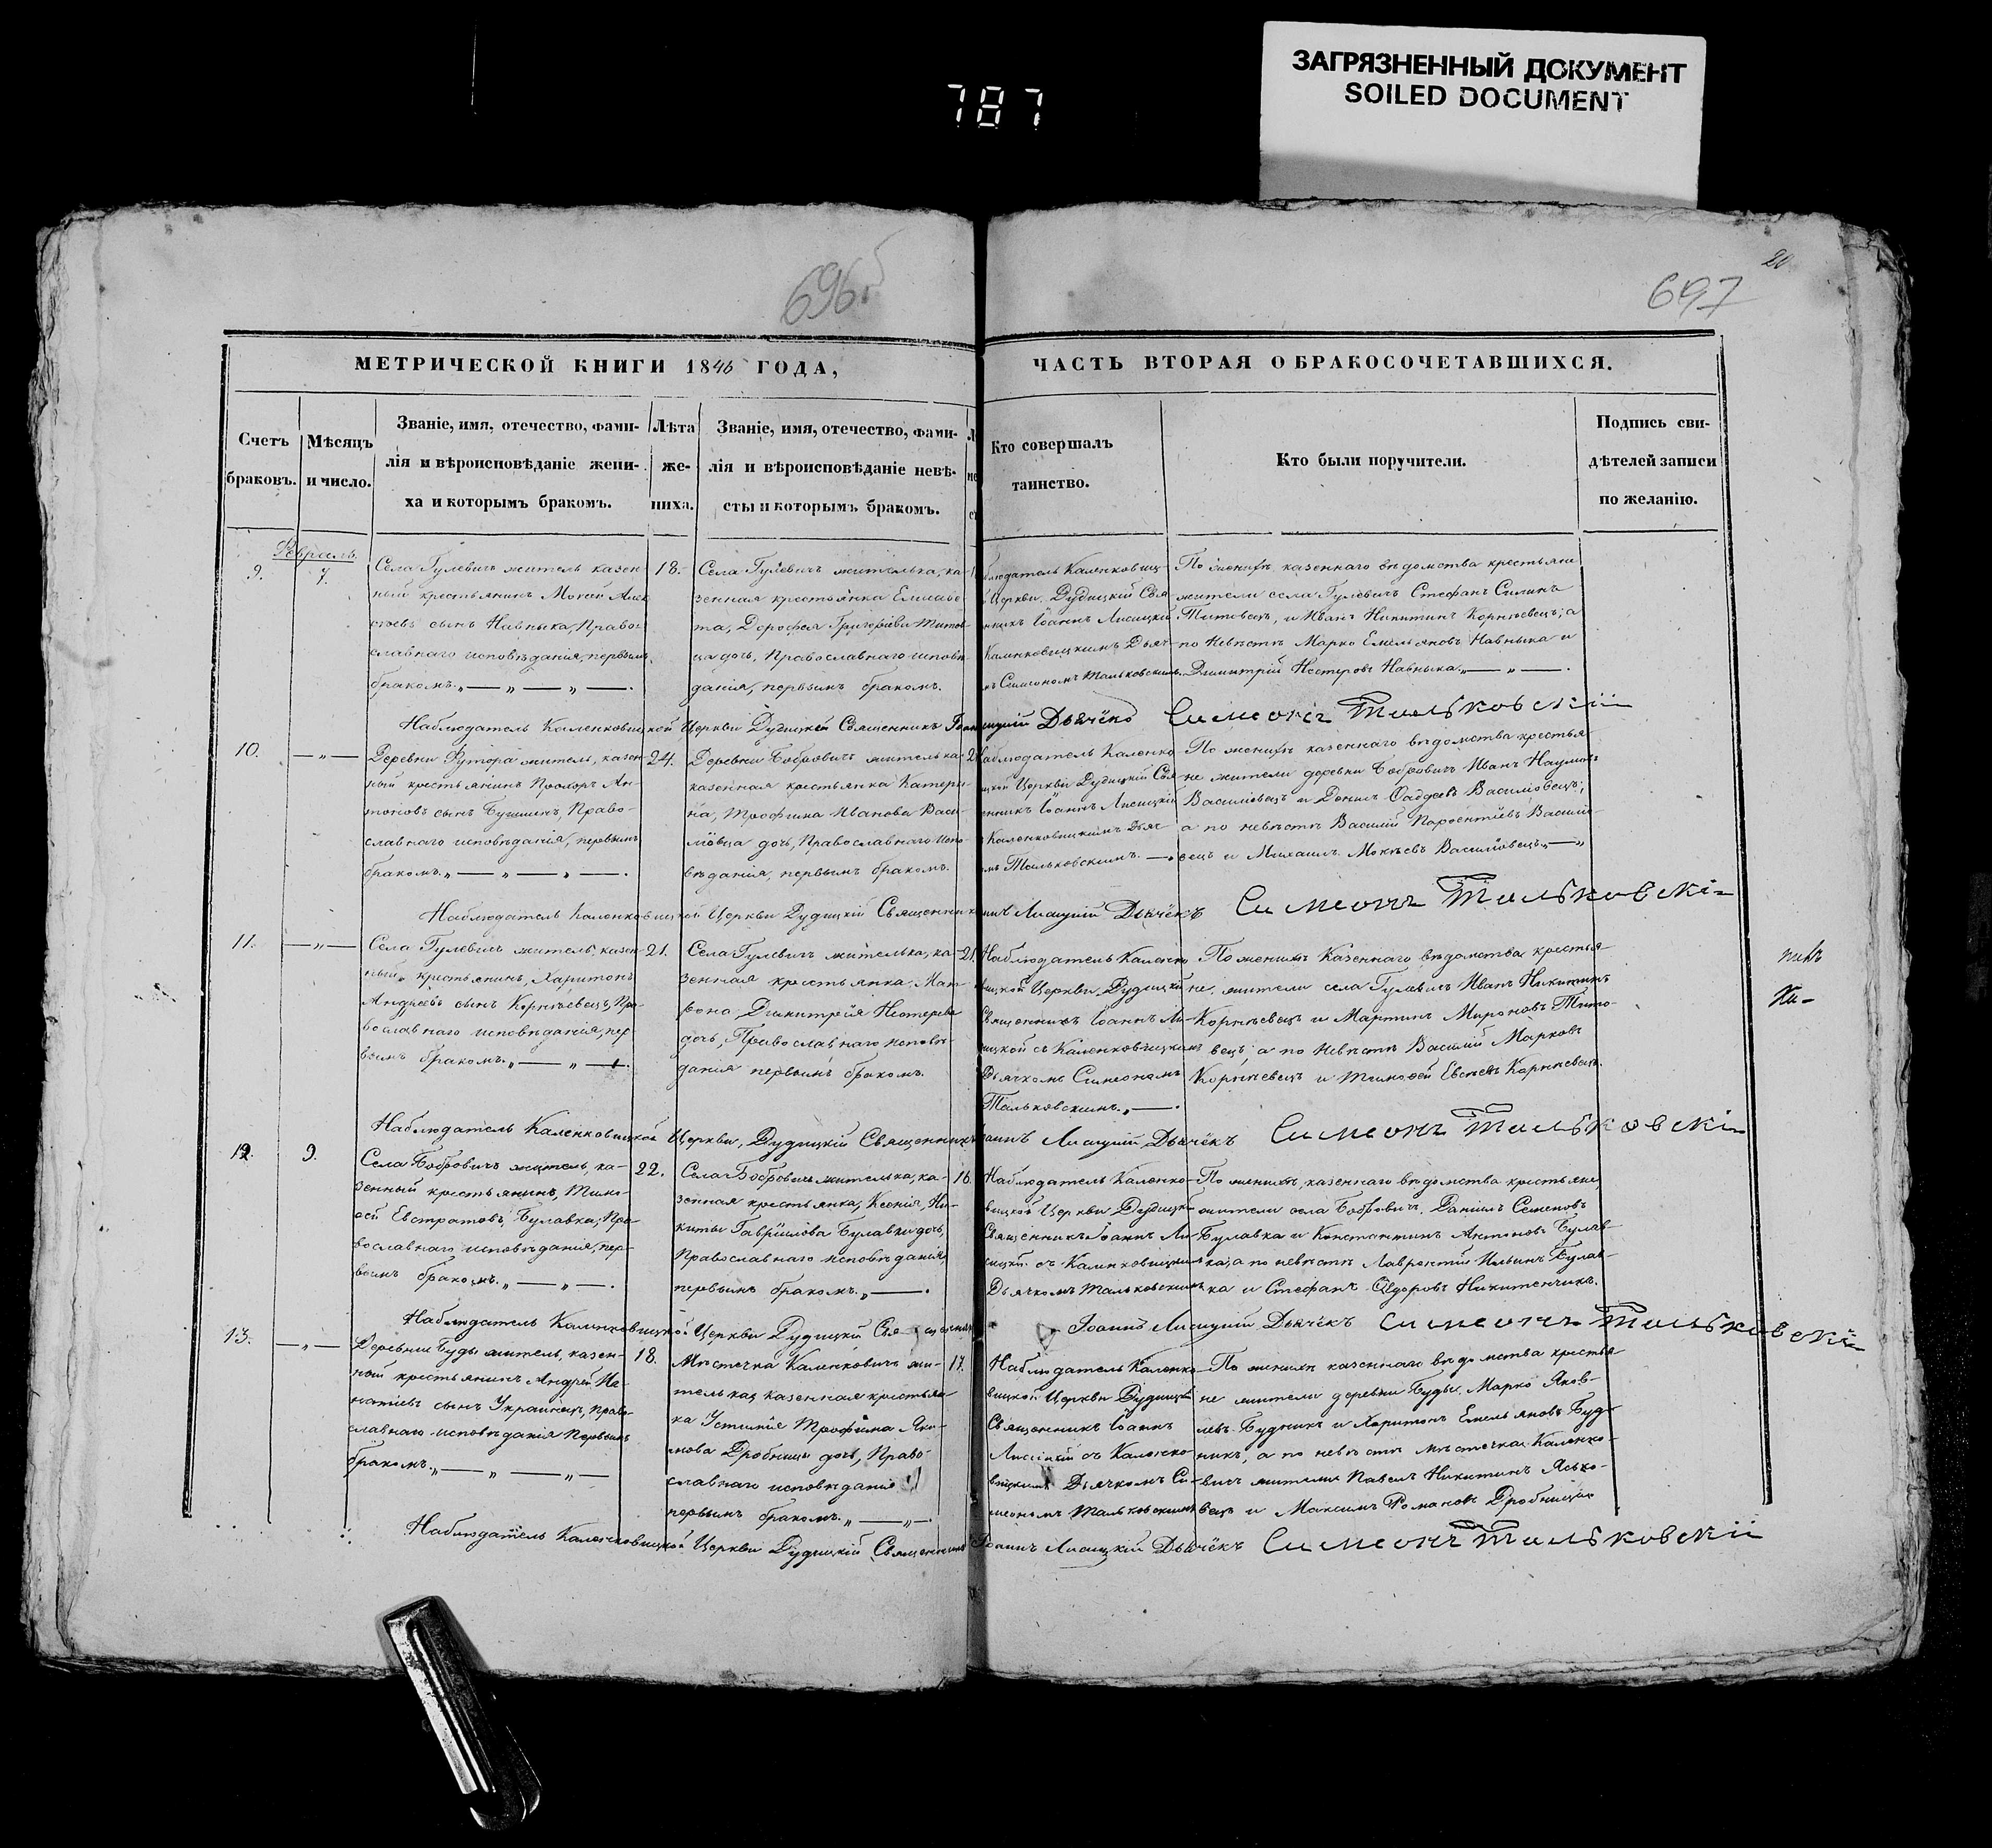 ЗАГРЯЗНЕННЫЙ ДОКУМЕНТ
SOILED DOCUMENT
787
696б
20
697
МЕТРИЧЕСКОЙ КНИГИ 1846 ГОДА,
ЧАСТЬ ВТОРАЯ О БРАКОСОЧЕТАВШИХСЯ.
Счетъ
браковъ.
Мѣсяцъ
и число.
Званіе, имя, отечество, фами-
лія и вѣроисповѣданіе жени-
ха и которымъ бракомъ.
Лѣта
же-
ниха.
Званіе, имя, отечество, фами-
лія и вѣроисповѣданіе невѣ-
сты и которымъ бракомъ.
Кто совершалъ
таинство.
Кто были поручители.
Подпись сви-
дѣтелей записи
по желанію.
Февраль.
9.
7.
Села Гулевичъ житель казен-
ный крестьянинъ Мокей Алек
сѣевъ сынъ Навныка, Право-
славнаго исповѣданія, первымъ
бракомъ.
18.
Села Гулевичъ жителька, ка-
зенная крестьянка Елисаве
та, Дорофея Григоріева Титов-
ца дочь, Православнаго исповѣ-
данія, первымъ бракомъ.
блюдатель Каленковиц-
Церкви, Дудицкій Свя
никъ Іоаннъ Лисицкій
Каленковицкимъ Дьяч-
Симеономъ Тальковскимъ.
По женихѣ казеннаго вѣдомства крестьяни
жители села Гулевичъ Стефанъ Силинъ
Титовецъ, и Иванъ Никитинъ Корнѣевецъ; а
по Невѣстѣ Марко Емельяновъ Навныка и
Димитрій Нестеровъ Навныка.
Наблюдатель Каленковицкой Церкви Дудицкій Священникъ Іоаннъ Лисицкій Дьячёкъ Симеонъ Тальковскій
10.
Деревни Футора житель, казен
ный крестьянинъ Прохоръ Ан-
тоновъ сынъ Право-
славнаго исповѣданія, первымъ
бракомъ.
24.
Деревни Бобровичъ жителька
казенная крестьянка Катери-
на, Трофима Иванова Васи-
лёвца дочь, Православнаго испо-
вѣданія, первымъ бракомъ.
аблюдатель Каленко
цкой Церкви Дудицкій Свя
нникъ Іоаннъ Лисицкій
Каленковицкимъ Дьяч
Тальковскимъ.
По женихѣ казеннаго вѣдомства крестья
не жители деревни Бобровичъ Иванъ Наумовъ
Василёвецъ и Данилъ Фаддеевъ Василёвецъ;
а по невѣстѣ Василій Парфентіевъ Васили-
вецъ и Михаилъ Мокѣевъ Василёвецъ.
Наблюдатель Каленковицкой Церкви Дудицкій Священникъ Іоаннъ Лисицкій Дьячёкъ Симеонъ Тальковскій
11.
Села Гулевичъ житель, казен
ный крестьянинъ, Харитонъ
Андреевъ сынъ Корнѣевецъ, Пра-
вославнаго исповѣданія, пер
вымъ бракомъ.
21.
Села Гулевичъ жителька, ка-
зенная крестьянка, Мат-
рона, Димитрія Нестерова
дочь, Православнаго исповѣ-
данія первымъ бракомъ.
21.
Наблюдатель Каленко
вицкой Церкви, Дудицкій
Священникъ Іоаннъ Ли-
сицкой съ Каленковицкимъ
Дьячкомъ Симеономъ
Тальковскимъ.
По женихѣ Казеннаго вѣдомства крестья
не, жители села Гулевичъ Иванъ Никитинъ
Корнѣевецъ и Мартинъ Мироновъ Тито-
вецъ, а по невѣстѣ Василій Марковъ
Корнѣевецъ и Тимофей Евсѣевъ Карнѣевецъ.
Наблюдатель Каленковицкой Церкви, Дудицкій Священникъ Іоаннъ Лисицкій Дьячёкъ Симеонъ Тальковскі
12.
9.
Села Бобровичъ житель, ка-
зенный крестьянинъ, Тимо-
фей Евстратовъ Булавка, Пра-
вославнаго исповѣданія, пер-
вымъ бракомъ.
22.
Села Бобровичъ жителька, ка-
зенная крестьянка, Ксенія, Ни-
киты Гавріилова Булавки дочь,
Православнаго исповѣданія,
первымъ бракомъ.
16.
Наблюдатель Каленко-
вицкой Церкви Дудицкій
Священникъ Іоаннъ Ли-
сицкій съ Каленковицкимъ
Дьячкомъ Тальковскимъ
По женихѣ, казеннаго вѣдомства крестьяне,
жители села Бобровичъ, Даніилъ Семеновъ
Булавка и Константинъ Антоновъ Булав-
ка; а по невѣстѣ Лаврентій Ильинъ Булав-
ка и Стефанъ Ѳедоровъ Никитенчикъ.
Наблюдатель Каленковицкой Церкви Дудицкій Священникъ Іоаннъ Лисицкій Дьячёкъ Симеонъ Тальковскій
13.
Деревни Буды житель, казен-
ный крестьянинъ Андрей Иг-
натіевъ сынъ Украинецъ, право-
славнаго исповѣданія первымъ
бракомъ.
18.
Мѣстечка Каленковичъ жи-
телька, казенная крестьян
ка Устинія Трофима Яки-
мова Дробницы дочь, Право-
славнаго исповѣданія
первымъ бракомъ.
17.
Наблюдатель Каленко-
вицкой Церкви Дудицкій
Священникъ Іоаннъ
Лисицкій съ Каленко-
вицкимъ Дьячкомъ Си-
меономъ Тальковскимъ
По женихѣ казеннаго вѣдомства крестья
не жители деревни Буды, Марко Яков-
левъ Будникъ и Харитонъ Емельяновъ Буд-
никъ, а по невѣстѣ мѣстечка Каленко-
вичъ жители Павелъ Никитинъ Ясько-
вецъ и Максимъ Романовъ Дробница
Наблюдатель Каленковицкой Церкви Дудицкій Священникъ Іоаннъ Лисицкій Дьячёкъ Симеонъ Тальковскій